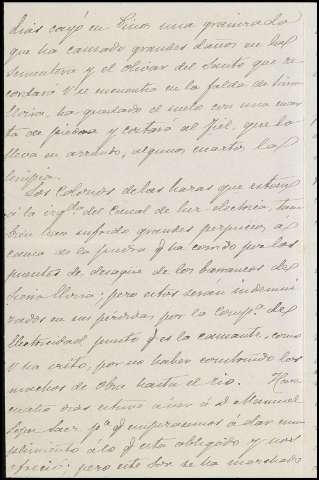 dias cayó en Vinos una granizada
que ha causado grandes daños en la
sementera y el olivar del Santo que re-
cordará V. se encuentra en la falda de
lloria, ha quedado el suelo con una cuar-
ta de piedra y cortará al fiel, que lo
lleva en arriendo, algunos cuartos la
limpia.
Los Colonos de las hazas que estan
á la izq.da del Canal de luz electrica, tam-
bien han sufrido grandes perjuicios á
causa de la piedra q ha corrido por los
puentes de desague de los barrancos de
lloria; pero estos serán indemni-
zados en sus pérdidas por la Comp.a de
Electricidad puesto q es la causante, como
V ha visto, por no haber construido los
machos de obra hasta el rio. Hace
cuatro dias estuve á ver á D Manuel
Lopez Saez p.a q empezasemos á dar cum-
plimiento á lo q está obligado y nos
ofreció; pero este Sor se ha marchado